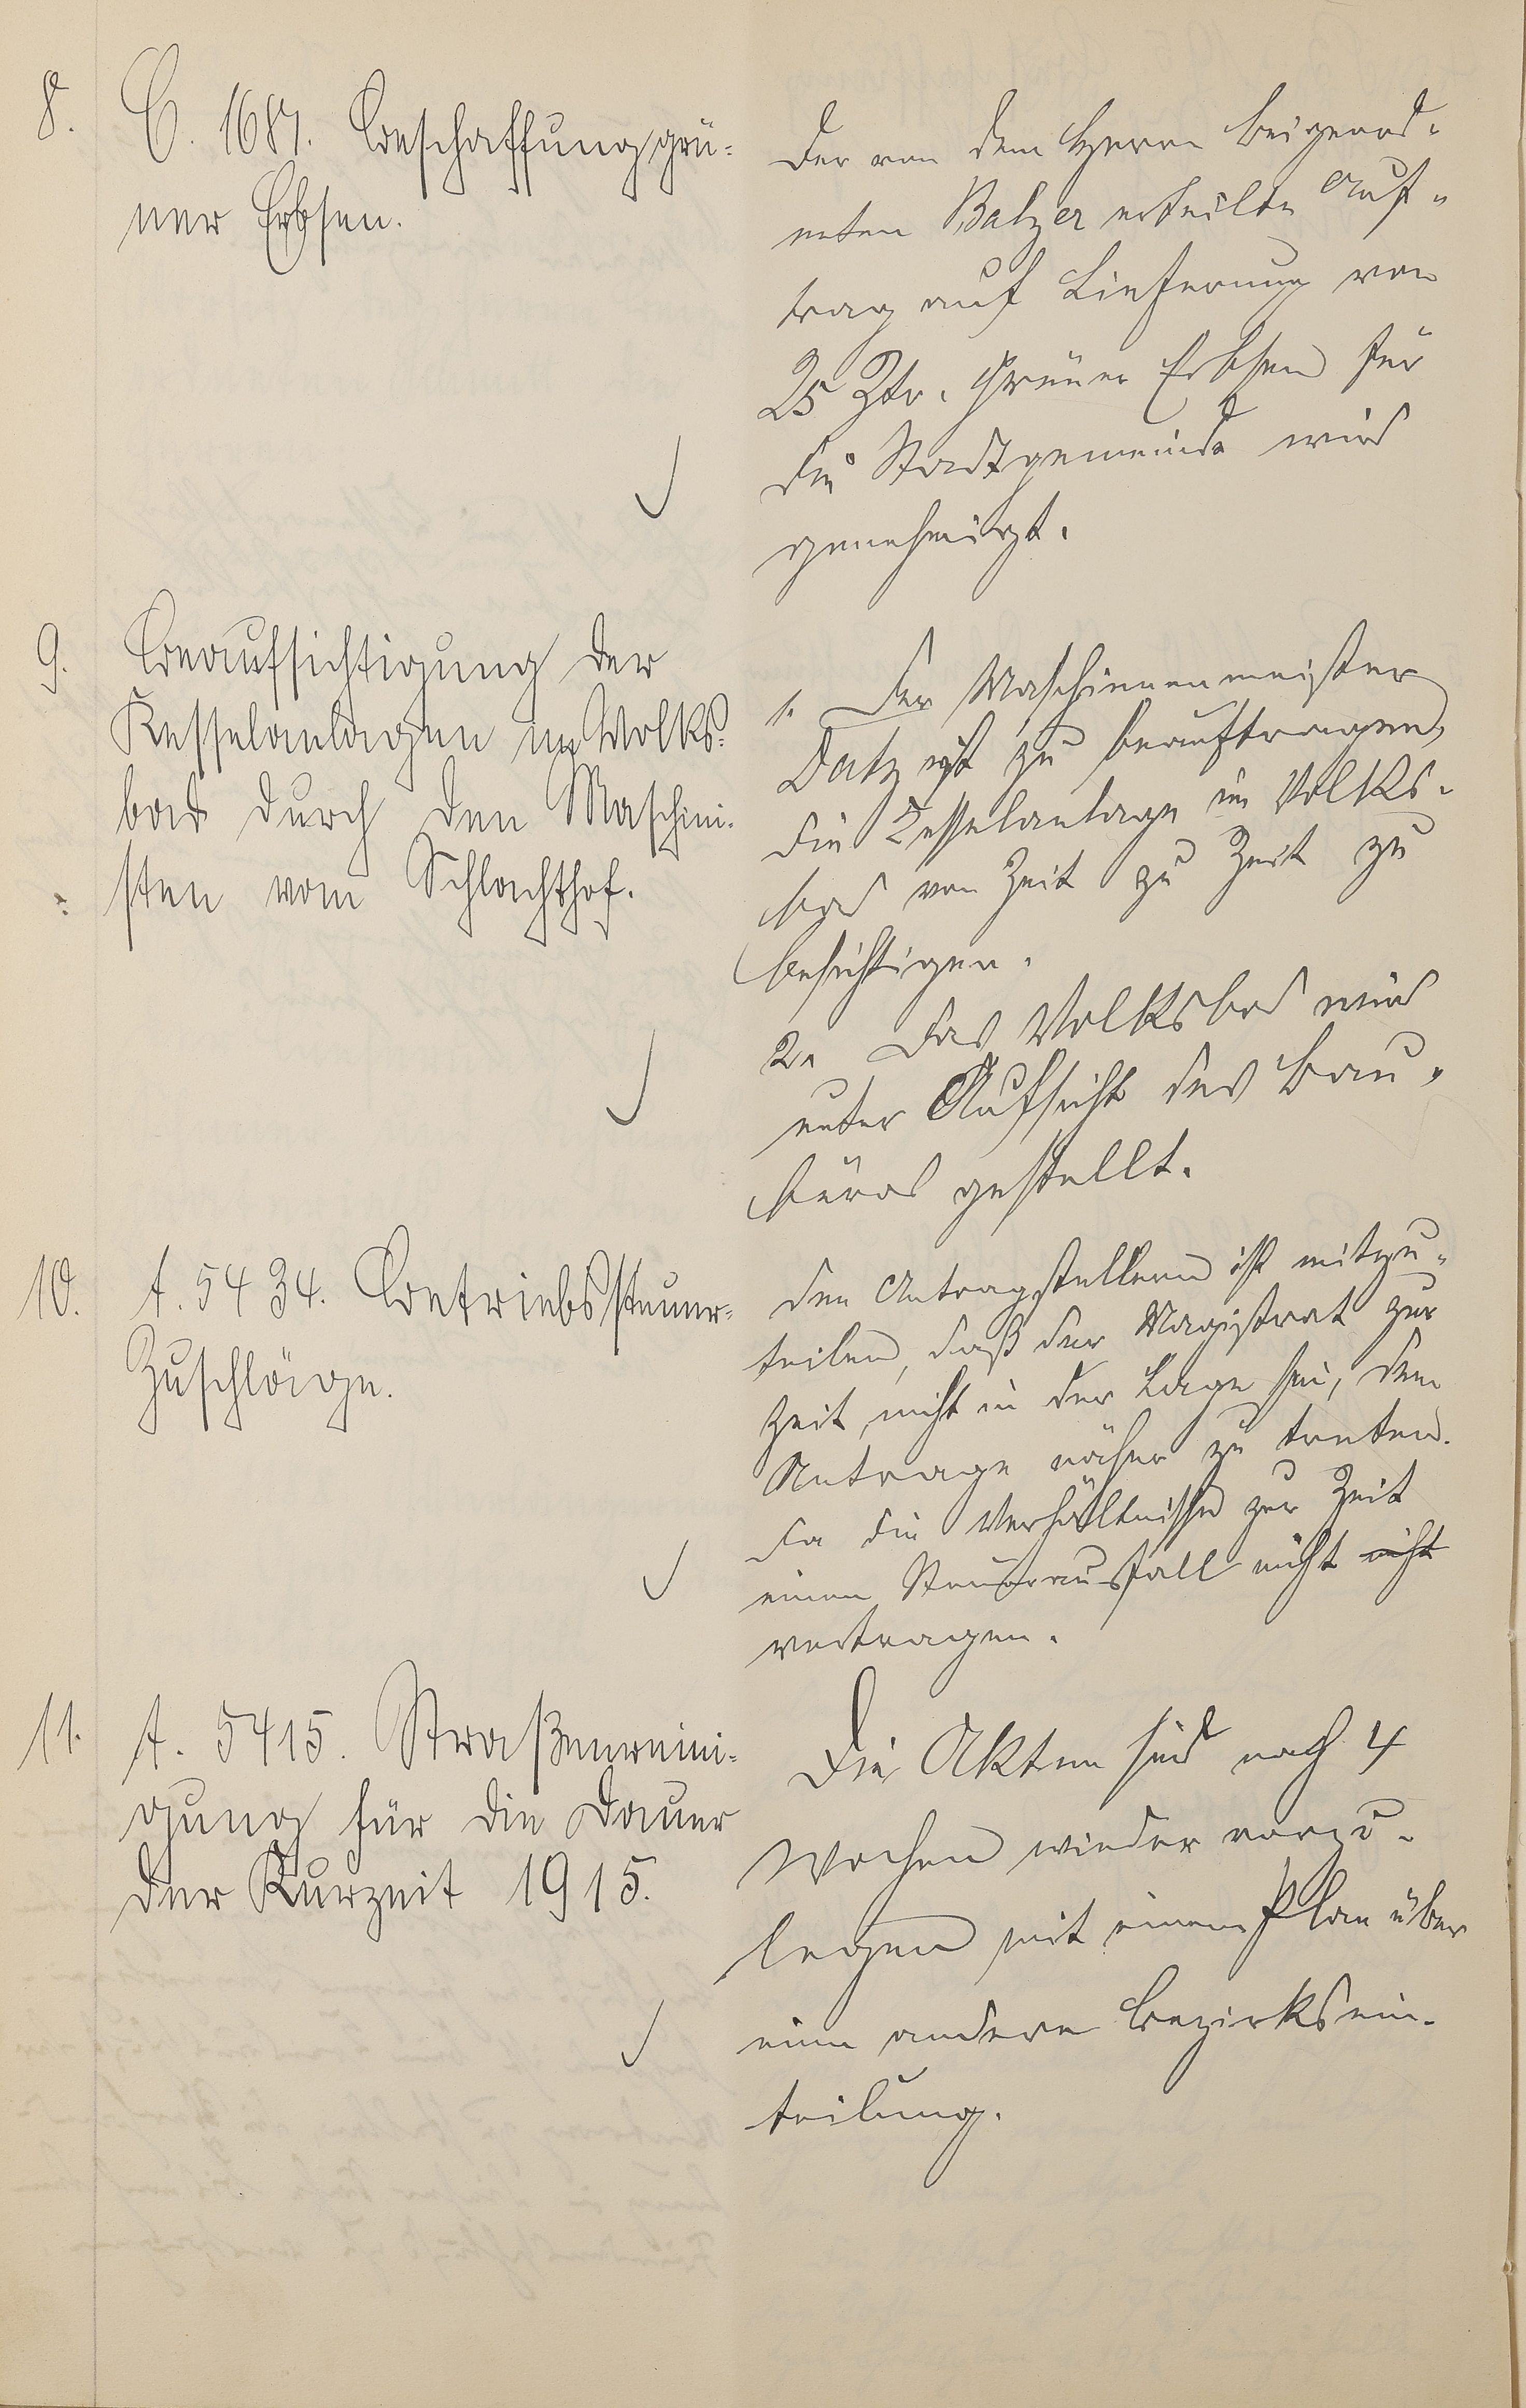 8.
C. 1687. Beschaffung grü-
ner Erbsen.
Der von dem Herrn Beigeord-
neten Balzer erteilte Auf-
trag auf Lieferung von
25 Ztr. grüner Erbsen für
die Stadtgemeinde wird
genehmigt.
9.
Beaufsichtigung der
Kesselanlagen im Volks-
bad durch den Maschini-
sten vom Schlachthof.
1. Der Maschinenmeister
Datz ist zu beauftragen,
die Kesselanlage im Volks-
bad von Zeit zu Zeit zu
besichtigen.
2. Das Volksbad wird
unter Aufsicht des Bau-
büros gestellt.
10.
A. 5434. Betriebssteuer-
Zuschläge.
Den Antragstellern ist mitzu-
teilen, daß der Magistrat zur
Zeit nicht in der Lage sei, dem
Antrage näher zu treten.
Da die Verhältnisse zur Zeit
einen Steuerausfall nicht nicht
vertragen.
11.
A. 5415. Straßenreini-
gung für die Dauer
der Kurzeit 1915.
Die Akten sind nach 4
Wochen wieder vorzu-
legen mit einem Plan über
eine andere Bezirksein-
teilung.